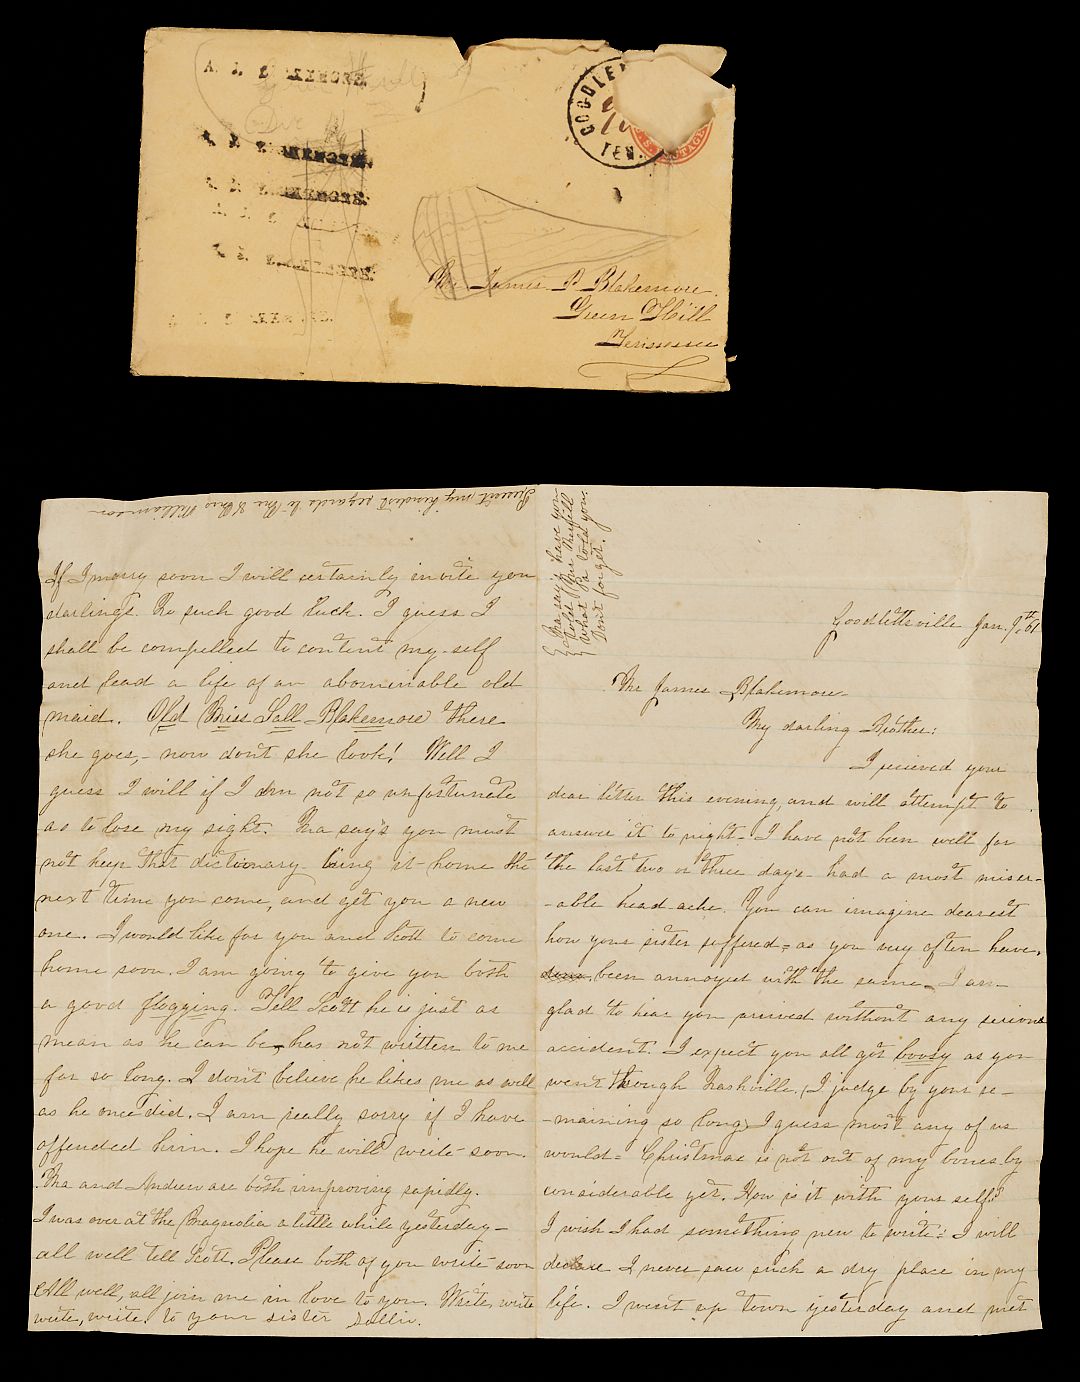 A. J. BLAKEMORE.
GOODLE
TEN.
U. S. POSTAGE
Mr James P Blakemore.
Green Hill
Tennessee
Present my kindest regards to Mr & Mrs Williamson
If I marry soon I will certainly invite you
darling. No such good luck. I guess I
shall be compelled to content my-self
and lead a life of an abominable old
maid. Old Miss Sall Blakemore "there
she goes,- now don't she look! Well I
guess I will if I am not so unfortunate
as to lose my sight. Ma say's you must
not keep that dictionary bring it home the
next time you come, and get you a new
one. I would like for you and Scott to come
home soon. I am going to give you both
a good flogging. Tell Scott he is just as
mean as he can be, has not written to me
for so long. I don't believe he likes me as well
as he once did. I am really sorry if I have
offended him. I hope he will write soon.
Ma and Andrew are both improving rapidly.
I was over at the Magnolia a little while yesterday-
all well tell Scott. Please both of you write soon
All well, all join me in love to you. Write, write
write, write, to your sister Sallie.
Ma say's have you
told Mr
what Pa told you.
Don't forget.
Goodlettsville Jan. 9th 61
Mr James Blakemore
My darling Brother:
I recieved your
dear letter this evening, and will attempt to
answer it to night- I have not been well for
the last two or three day's- had a most miser-
-able head-ache. You can imagine dearest
how your sister suffered = as you very often have,
been annoyed with the same- I am
glad to hear you arrived without any serious
accident. I expect you all got boosy as you
went through Nashville. (I judge by your re-
-maining so long) I guess most any of us
would = Christmas is not out of my bones by
considerable yet. How is it with your self?
I wish I had something new to write: I will
declare I never saw such a dry place in my
life. I went up town yesterday and met